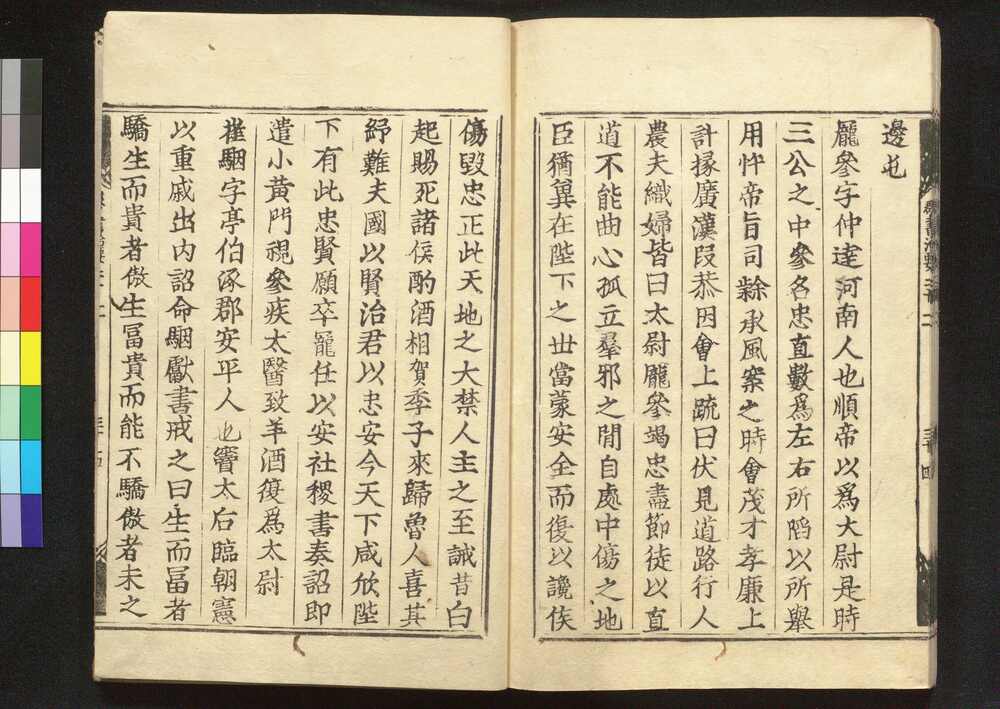 邊也
龐參字仲達河南人也順帝以爲大尉是時
三公之中參名忠直數爲左右所陷以所舉
用忤帝旨司隸承風案之時會茂才孝廉上
計掾廣漢段恭因會上疏曰伏見道路行人
農夫織婦皆曰太尉龐參竭忠盡節徒以直
道不能曲心孤立羣邪之閒自處中傷之地
臣猶冀在陛下之世當蒙安全而復以讒佞
傷毀忠正此天地之大禁人主之至誡昔白
起賜死諸侯酌酒相賀季子來歸魯人喜其
紓難夫國以賢治君以忠安今天下咸欣陛
下有此忠賢願卒寵任以安社稷書奏詔即
遣小黃門視參疾太醫致羊酒復爲太尉
崔駰字亭伯涿郡安平人也竇太后臨朝憲
以重戚出內詔命駰獻書戒之曰生而冨者
驕生而貴者傲生冨貴而能不驕傲者未之